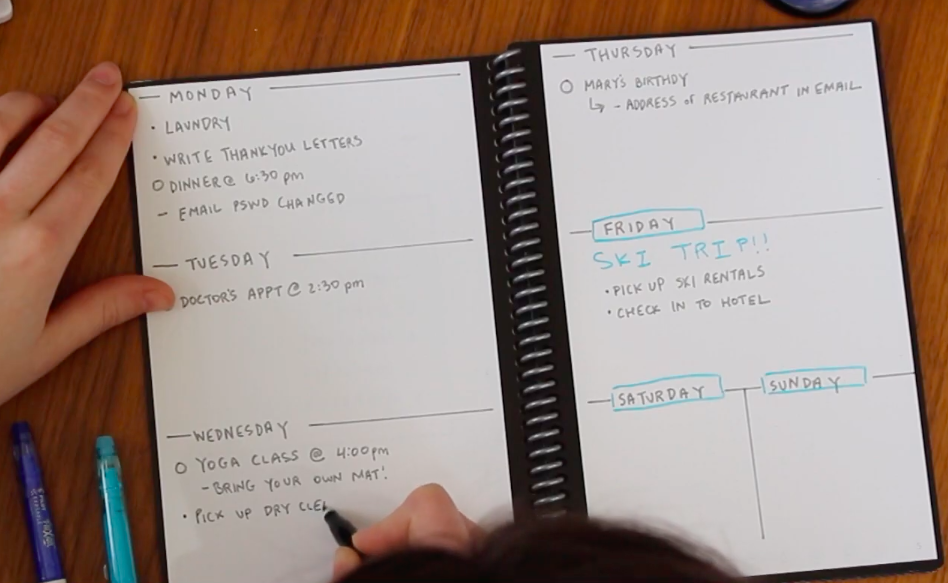 — MONDAY —
• LAUNDRY
• WRITE THANKYOU LETTERS
O DINNER @ 6:30 pm
- EMAIL PSWD CHANGED
— TUESDAY —
DOCTOR'S APPT @ 2:30 pm
— WEDNESDAY —
O YOGA CLASS @ 4:00pm
- BRING YOUR OWN MAT!
• PICK UP DRY CLE
— THURSDAY —
O MARY'S BIRTHDY
↳ - ADDRESS of RESTAURANT IN EMAIL
— FRIDAY —
SKI TRIP!!
• PICK UP SKI RENTALS
• CHECK IN TO HOTEL
— SATURDAY — SUNDAY —